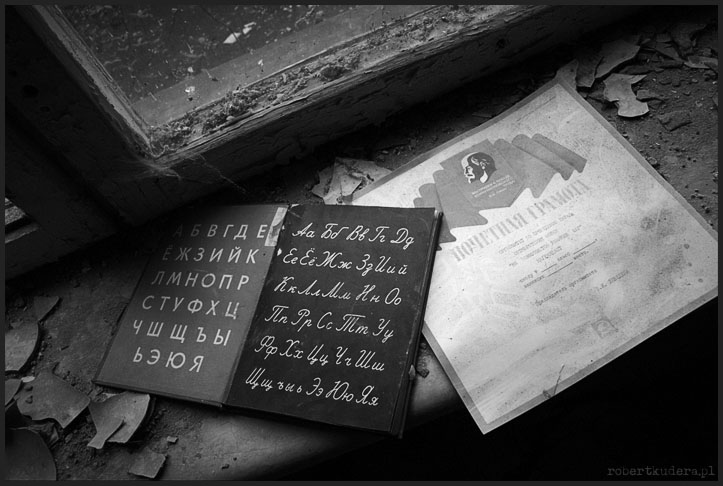 А Б В Г Д Е
Ё Ж З И Й К
Л М Н О П Р
С Т У Ф Х Ц
Ч Ш Щ Ъ Ы
Ь Э Ю Я
Аа Бб Вв Гг Дд
Ее Ёё Жж Зз Ии й
Кк Лл Мм Нн Оо
Пп Рр Сс Тт Уу
Фф Хх Цц Чч Шш
Щщ ъ ы ь Ээ Юю Яя
ПОЧЕТНАЯ ГРАМОТА
robertkudera.pl